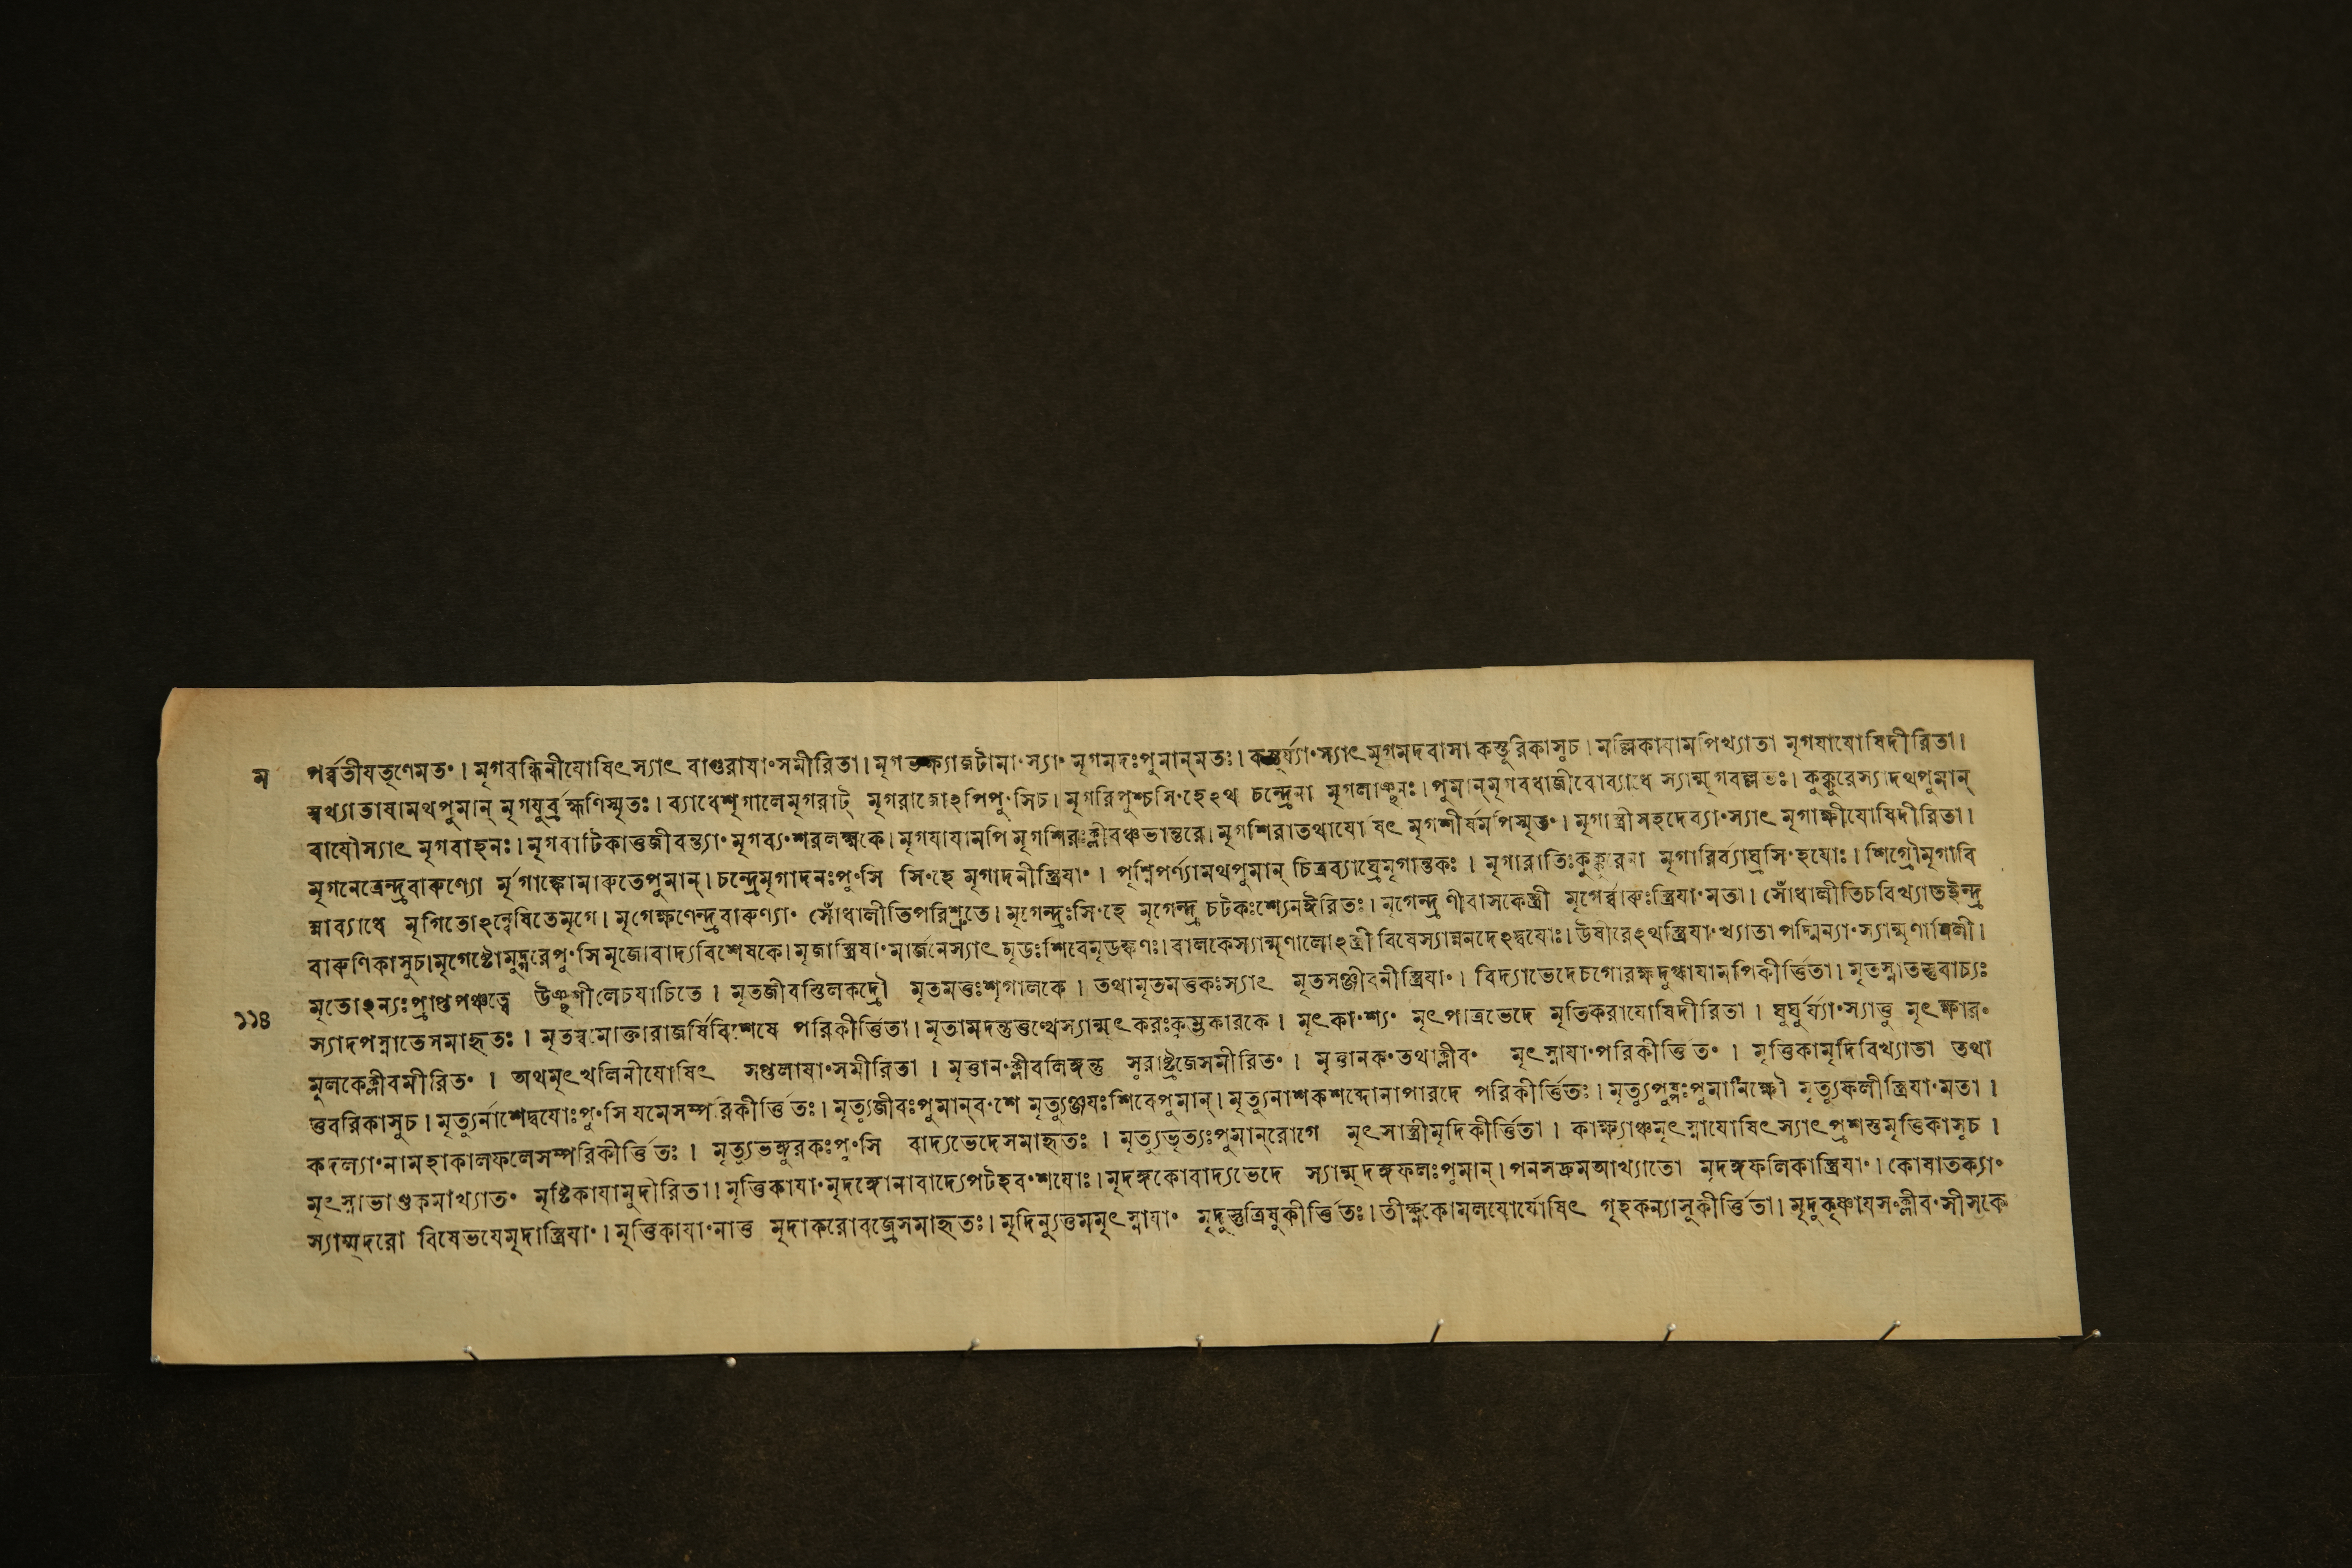 ম পর্ব্বতীযতৃণেমতং। মৃগবন্ধিনীযোষিৎস্যাৎ বাগুরাযাংসমীরিতা। মৃগভক্ষ্যাজটামাংস্যাং মৃগমদঃপুমান্মতঃ। কস্তুর্য্যাংস্যাৎমৃগমদবাসা কস্তুরিকাসুচ। মল্লিকাযামপিখ্যাতা মৃগযাযোষিদীরিতা।
স্বখ্যাতাষামথপুমান্ মৃগযুর্ব্রহ্মণিস্মৃতঃ। ব্যাধেশৃগালেমৃগরাট্ মৃগরাজোঽপিপুংসিচ। মৃগরিপুশ্চসিংহেঽথ চন্দ্রেনা মৃগলাঞ্ছনঃ। পুমান্মৃগবধাজীবোব্যাধে স্যান্মৃগবল্লভঃ। কুক্কুরেস্যাদথপুমান্
বাযৌস্যাৎ মৃগবাহনঃ। মৃগবাটিকাত্তজীবন্ত্যাং মৃগব্যংশরলক্ষ্মকে। মৃগযাযামপি মৃগশিরঃক্লীবঞ্চভান্তরে। মৃগশিরাতথাযোষিৎ মৃগশীর্ষমপিস্মৃতং। মৃগাস্ত্রীসহদেব্যাংস্যাৎ মৃগাক্ষীযোষিদীরিতা।
মৃগনেত্রেন্দ্রবারুণ্যো র্মৃগাঙ্কোমারুতেপুমান্। চন্দ্রেমৃগাদনঃপুংসি সিংহে মৃগাদনীস্ত্রিযাং। পৃশ্নিপর্ণ্যামথপুমান্ চিত্রব্যাঘ্রেমৃগান্তকঃ। মৃগারাতিঃকুক্কুরেনা মৃগারির্ব্যাঘ্রসিংহযোঃ। শিগ্রৌমৃগাবি
ন্নাব্যাধে মৃগিতোঽন্বেষিতেমৃগে। মৃগেক্ষণেন্দ্রবারুণ্যাং সোঁধালীতিপরিশ্রুতে। মৃগেন্দ্রঃসিংহে মৃগেন্দ্র চটকঃশ্যেনঈরিতঃ। মৃগেন্দ্রাণীবাসকেস্ত্রী মৃগের্ব্বারুঃস্ত্রিযাংমতা। সোঁধালীতিচবিখ্যাতইন্দ্র
বারুণিকাসুচ। মৃগেষ্টোমুদ্গরেপুংসিমৃজোবাদ্যবিশেষকে। মৃজাস্ত্রিষাংমার্জনেস্যাৎ মৃডঃশিবেমৃডঙ্কণঃ। বালকেস্যান্মৃণালোঽস্ত্রী বিষেস্যান্নলদেঽদ্বযোঃ। উষীরেঽথস্ত্রিযাংখ্যাতা পদ্মিন্যাংস্যান্মৃণালিনী।
মৃতোঽন্যঃপ্রাপ্তপঞ্চত্বে উঞ্ছশীলেচযাচিতে। মৃতজীবস্তিলকদ্রৌ মৃতমত্তঃশৃগালকে। তথামৃতমত্তকঃস্যাৎ মৃতসঞ্জীবনীস্ত্রিযাং। বিদ্যাভেদেচগোরক্ষদুগ্ধাযামপিকীর্ত্তিতা। মৃতস্নাতস্তুবাচ্যঃ
১১৪ স্যাদপস্নাতেসমাহৃতঃ। মৃতস্বমোক্তারাজর্ষিবিশেষে পরিকীর্ত্তিতা। মৃতামদন্তুত্তুত্থেস্যান্মৃৎকরঃকুম্ভকারকে। মৃৎকাংশ্যং মৃৎপাত্রভেদে মৃতিকরাযোষিদীরিতা। ঘুর্ঘুর্য্যাংস্যাত্তু মৃৎক্ষারং
মুলকেক্লীবমীরিতং। অথমৃৎখলিনীযোষিৎ সপ্তলাযাংসমীরিতা। মৃত্তানংক্লীবলিঙ্গন্তু সুরাষ্ট্রজেসমীরিতং। মৃত্তানকংতথাক্লীবং মৃৎস্নাযাংপরিকীর্ত্তিতং। মৃত্তিকামৃদিবিখ্যাতা তথা
ত্তুবরিকাসুচ। মৃত্যুর্নাশেদ্বযোঃপুংসি যমেসম্পরিকীর্ত্তিতঃ। মৃত্যুজীবঃপুমান্বংশে মৃত্যুঞ্জযঃশিবেপুমান্। মৃত্যুনাশকশব্দোনাপারদে পরিকীর্ত্তিতঃ। মৃত্যুপুষ্পঃপুমানিক্ষৌ মৃত্যুফলীস্ত্রিযাংমতা।
কদল্যাংনামহাকালফলেসম্পরিকীর্ত্তিতঃ। মৃত্যুভঙ্গুরকঃপুংসি বাদ্যভেদেসমাহৃতঃ। মৃত্যুভৃত্যঃপুমান্রোগে মৃৎসাস্ত্রীমৃদিকীর্ত্তিতা। কাক্ষ্যাঞ্চমৃৎস্নাযোষিৎস্যাৎপ্রশস্তমৃত্তিকাসুচ।
মৃৎস্নাভাণ্ডকমাখ্যাতং মৃষ্টিকাযামুদীরিতা। মৃত্তিকাযাংমৃদঙ্গোনাবাদ্যেপটহবংশযোঃ। মৃদঙ্গকোবাদ্যভেদে স্যান্মৃদঙ্গফলঃপুমান্। পনসদ্রুমআখ্যাতো মৃদঙ্গফলিকাস্ত্রিযাং। কোষাতক্যাং
স্যান্মৃদরো বিষেভযেমৃদাস্ত্রিযাং। মৃত্তিকাযাংনাত্ত মৃদাকরোবজ্রেসমাহৃতঃ। মৃদিন্যুত্তমমৃৎস্নাযাং মৃদুস্তুত্রিষুকীর্ত্তিতঃ। তীক্ষ্ণকোমলযোর্যোষিৎ গৃহকন্যাসুকীর্ত্তিতা। মৃদুকৃষ্ণাযসংক্লীবংসীসকে